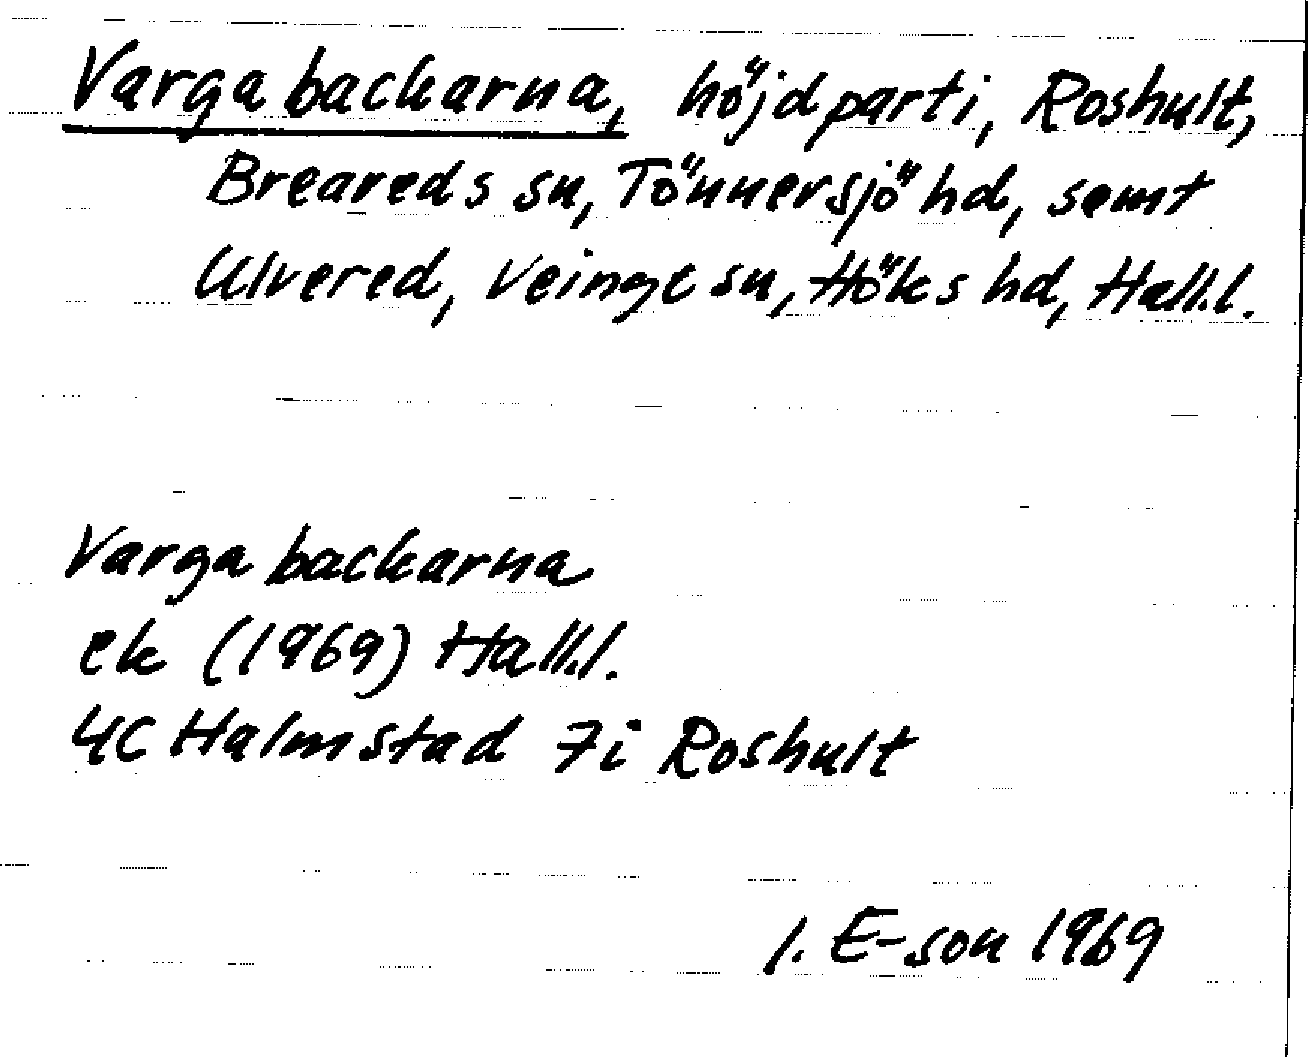 Vargabackarna, höjdparti, Roshult,
Breareds sn, Tönnersjö hd, samt
Ulvered, Veinge sn, Höks hd, Hall.l.
Vargabackarna
ek (1969) Hall.l.
4C Halmstad 7i Roshult
I. E-son 1969